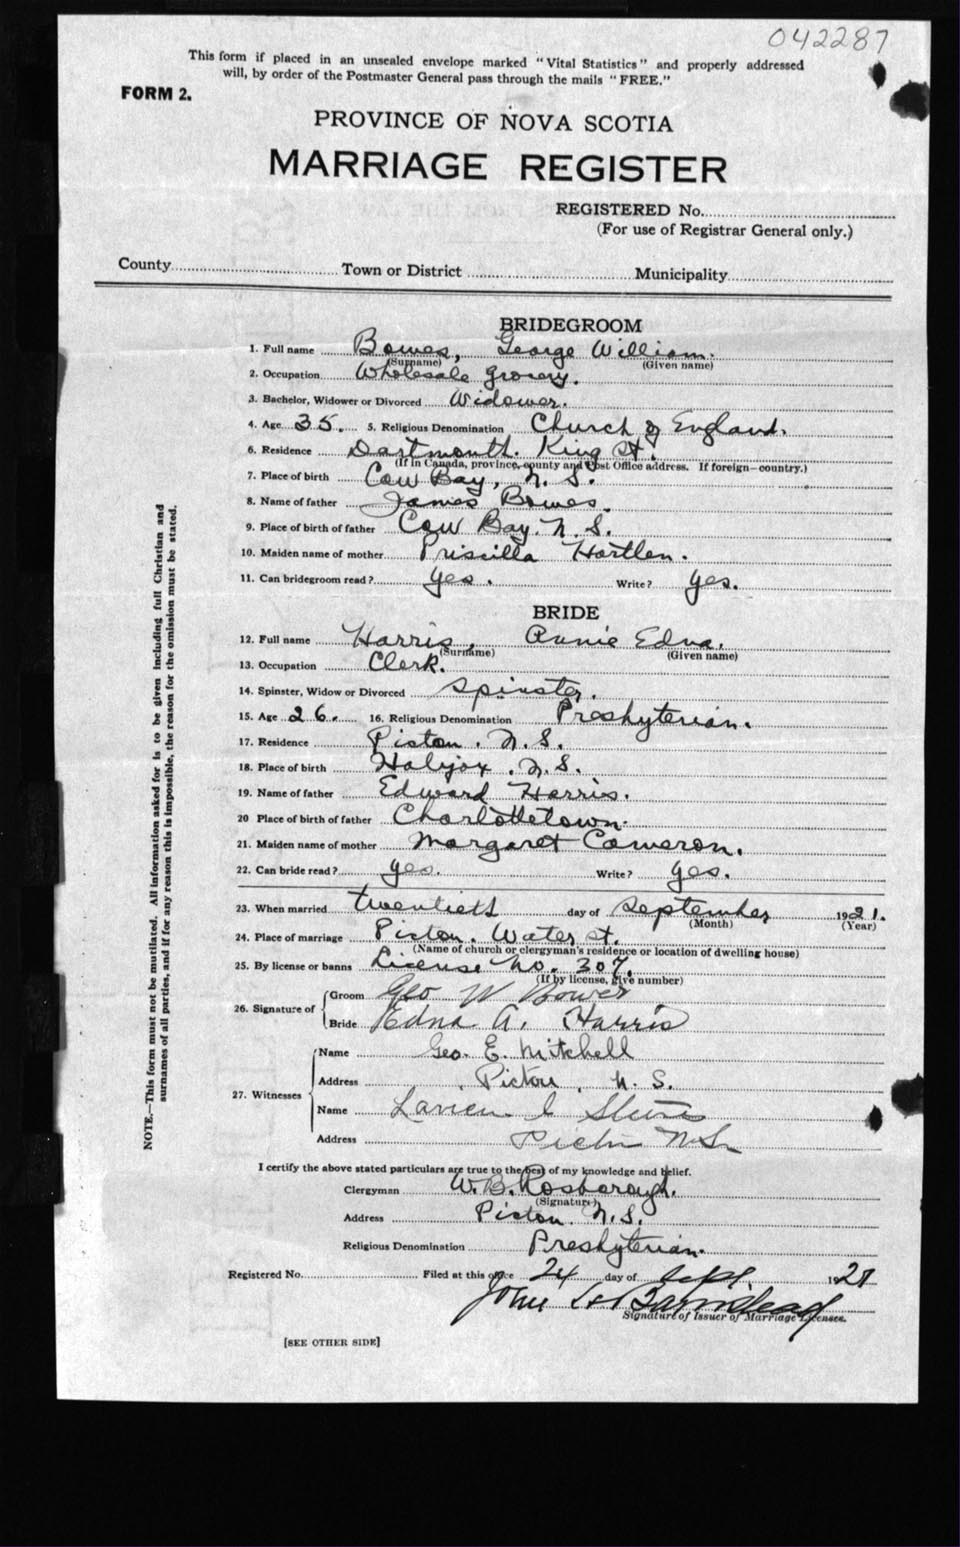 042287
This form if placed in an unsealed envelope marked "Vital Statistics" and properly addressed
will, by order of the Postmaster General pass through the mails "FREE."
FORM 2.
PROVINCE OF NOVA SCOTIA
MARRIAGE REGISTER
REGISTERED No.
(For use of Registrar General only.)
County Town or District Municipality
BRIDEGROOM
1. Full name Bowes, George William.
(Surname) (Given name)
2. Occupation Wholesale Grocery.
3. Bachelor, Widower or Divorced Widower.
4. Age 35. 5. Religious Denomination Church of England.
6. Residence Dartmouth. King St.
(If in Canada, province, county and Post Office address. If foreign—country.)
7. Place of birth Cow Bay, N.S.
8. Name of father James Bowes.
9. Place of birth of father Cow Bay. N.S.
10. Maiden name of mother Priscilla Hartlen.
11. Can bridegroom read? yes. Write? yes.
BRIDE
12. Full name Harris, Annie Edna.
(Surname) (Given name)
13. Occupation Clerk.
14. Spinster, Widow or Divorced Spinster.
15. Age 26. 16. Religious Denomination Presbyterian.
17. Residence Pictou. N.S.
18. Place of birth Halifax. N.S.
19. Name of father Edward Harris.
20 Place of birth of father Charlottetown.
21. Maiden name of mother Margaret Cameron.
22. Can bride read? yes. Write? yes.
23. When married twentieth day of September 1921.
(Month) (Year)
24. Place of marriage Pictou. Water St.
(Name of church or clergyman's residence or location of dwelling house)
25. By license or banns License No. 307.
(If by license, give number)
26. Signature of
Groom Geo W Bowes
Bride Edna A. Harris
27. Witnesses
Name Geo. E. Mitchell
Address Pictou, N.S.
Name
Address Pictou N.S.
I certify the above stated particulars are true to the best of my knowledge and belief.
Clergyman W. B. Rosborough.
(Signature)
Address Pictou. N.S.
Religious Denomination Presbyterian.
Registered No. Filed at this office 24 day of Sept. 1921
John
Signature of Issuer of Marriage Licenses.
[SEE OTHER SIDE]
NOTE.—This form must not be mutilated. All information asked for is to be given including full Christian and
surnames of all parties, and if for any reason this is impossible, the reason for the omission must be stated.